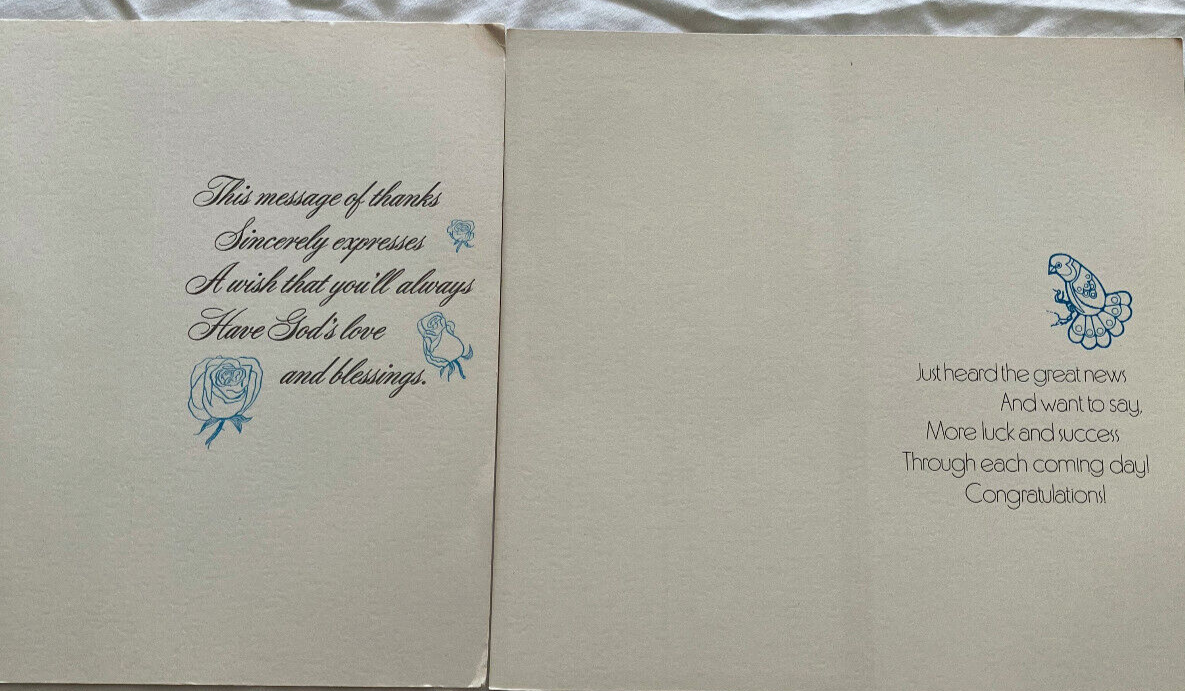 This message of thanks
Sincerely expresses
A wish that you'll always
Have God's love
and blessings.
Just heard the great news
And want to say,
More luck and success
Through each coming day!
Congratulations!